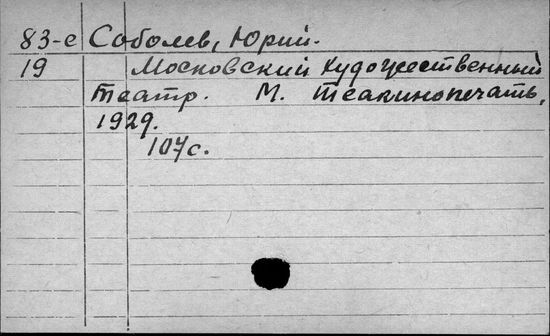 83-е Соболев, Юрий.
19 Московский Художественный
театр. М. Теакинопечать,
1929.
107с.